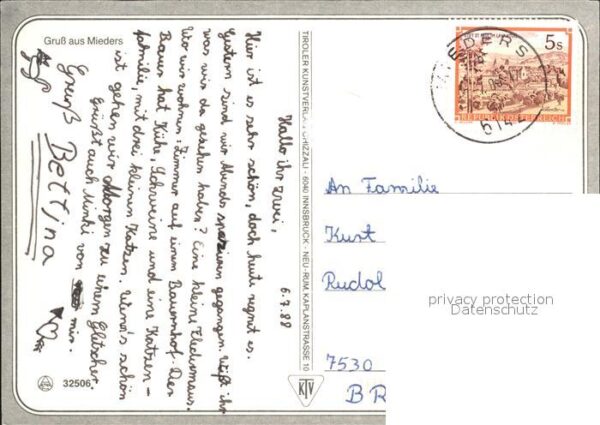 Gruß aus Mieders
6.7.88
Hallo ihr zwei,
Hier ist es sehr schön, doch heute regnet es.
Gestern sind wir Abends spazieren gegangen. Wißt ihr
was wir da gesehen haben? Eine kleine Fledermaus.
Wo wir wohnen: Zimmer auf einem Bauernhof. Der
Bauer hat Kühe, Schweine und eine Katzen-
familie, mit drei kleinen Katzen. Wenn's schön
ist gehen wir Morgen zu einem Gletscher.
Grüßt auch Minki von mir.
Gruß
Bettina
32506
TIROLER KUNSTVERLAG CHIZZALI · 6040 INNSBRUCK - NEU-RUM, KAPLANSTRASSE 10
KTV
5s
REPUBLIK ÖSTERREICH
MIEDERS
6142
An Familie
Kurt
Rudol
7530
BR
privacy protection
Datenschutz